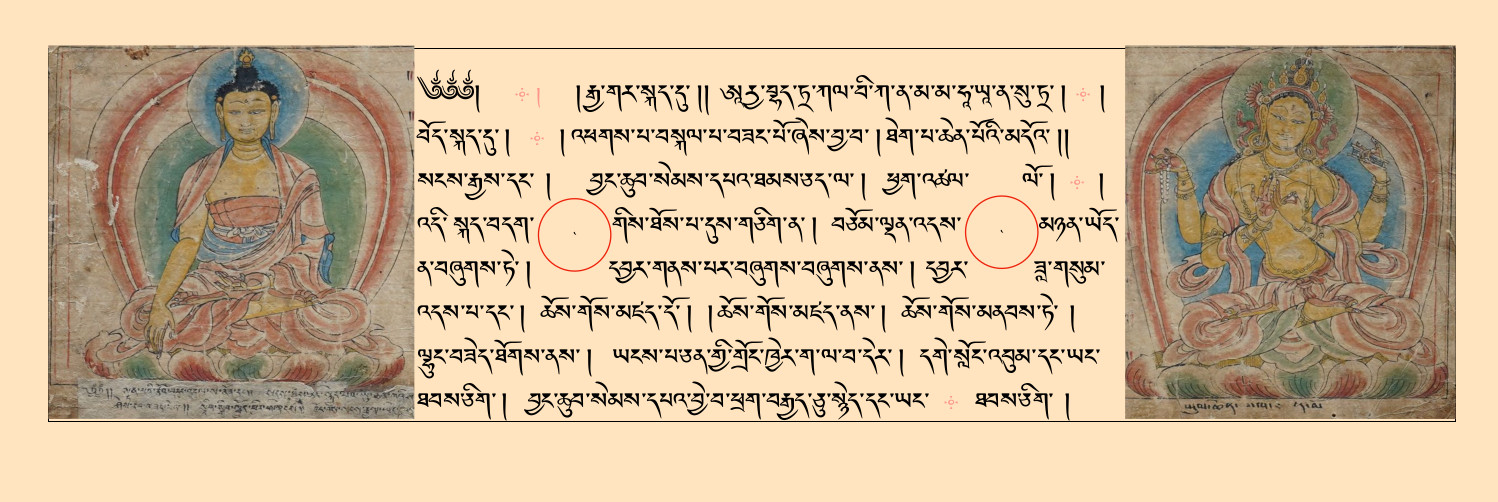 ༄༅༅། །རྒྱ་གར་སྐད་དུ་།། ཨཱརྱ་བྷདྲ་ཀལ་པི་ཀ་ན་མ་མ་ཧཱ་ཡཱ་ན་སཱུ་ཏྲ། །
བོད་སྐད་དུ་། །འཕགས་པ་བསྐལ་པ་བཟང་པོ་ཞེས་བྱ་བ་།ཐེག་པ་ཆེན་པོའི་མདོའ་།།
སངས་རྒྱས་དང་། བྱང་ཆུབ་སེམས་དཔའ་ཐམས་ཅད་ལ་། ཕྱག་འཚལ་ ལོ་། །
འདི་ སྐད་བདག་ གིས་ཐོས་པ་དུས་གཅིག་ན་། བཅོམ་ལྡན་འདས་ མཉན་ཡོད་
ན་བཞུགས་ཏེ་། དབྱར་གནས་པར་བཞུགས་བཞུགས་ནས་། དབྱར་ ཟླ་གསུམ་
འདས་པ་དང་། ཆོས་གོས་མཛད་དོ་། །ཆོས་གོས་མཛད་ནས་། ཆོས་གོས་མནབས་ཏེ་།
ལྷུང་བཟེད་ཐོགས་ནས་། ཡངས་པ་ཅན་གྱི་གྲོང་ཁྱེར་ག་ལ་བ་དེར་། དགེ་སློང་འབུམ་དང་ཡང་
ཐབས་ཅིག་། བྱང་ཆུབ་སེམས་དཔའ་བྱེ་བ་ཕྲག་བརྒྱད་ཅུ་སྙེད་དང་ཡང་ ཐབས་ཅིག་།